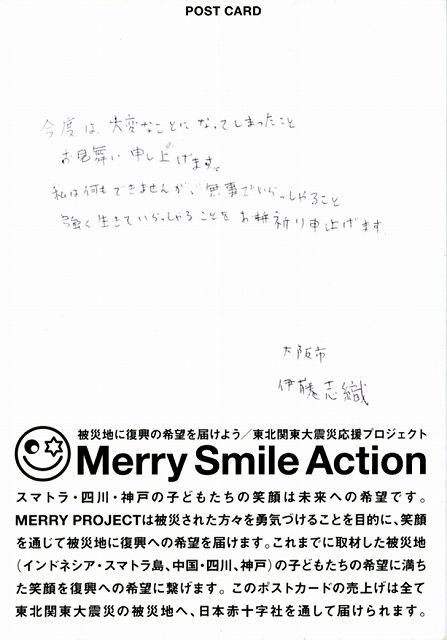 POST CARD
今度は、大変なことになってしまったこと
お見舞い申し上げます。
私は何もできませんが、無事でいらっしゃること
強く生きていらっしゃることをお祈り申上げます
大阪市
伊藤志織
被災地に復興の希望を届けよう/東北関東大震災応援プロジェクト
Merry Smile Action
スマトラ・四川・神戸の子どもたちの笑顔は未来への希望です。
MERRY PROJECTは被災された方々を勇気づけることを目的に、笑顔
を通じて被災地に復興への希望を届けます。これまでに取材した被災地
(インドネシア・スマトラ島、中国・四川、神戸)の子どもたちの希望に満ち
た笑顔を復興への希望に繋げます。このポストカードの売上げは全て
東北関東大震災の被災地へ、日本赤十字社を通して届けられます。